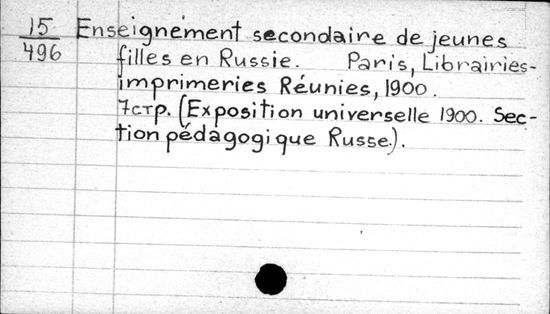 15 Enseignement secondaire de jeunes
496 filles en Russie. Paris, Librairies-
imprimeries Réunies, 1900.
7стр. (Exposition universelle 1900. Sec-
tion pédagogique Russe.).